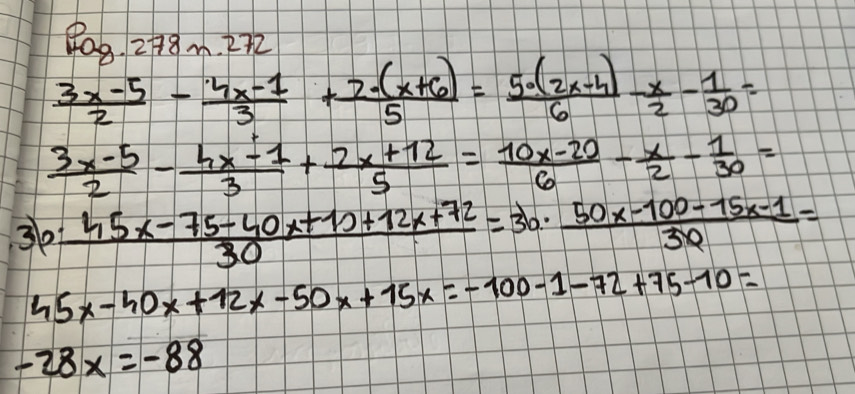 Pag. 278 n. 272
3x-5/2 - 4x-1/3 + 2·(x+6)/5 = 5·(2x-4)/6 - x/2 - 1/30 =
3x-5/2 - 4x-1/3 + 2x+12/5 = 10x-20/6 - x/2 - 1/30 =
30· 45x-75-40x+10+12x+72/30 = 30· 50x-100-15x-1/30 =
45x-40x+12x-50x+15x=-100-1-72+75-10=
-28x=-88